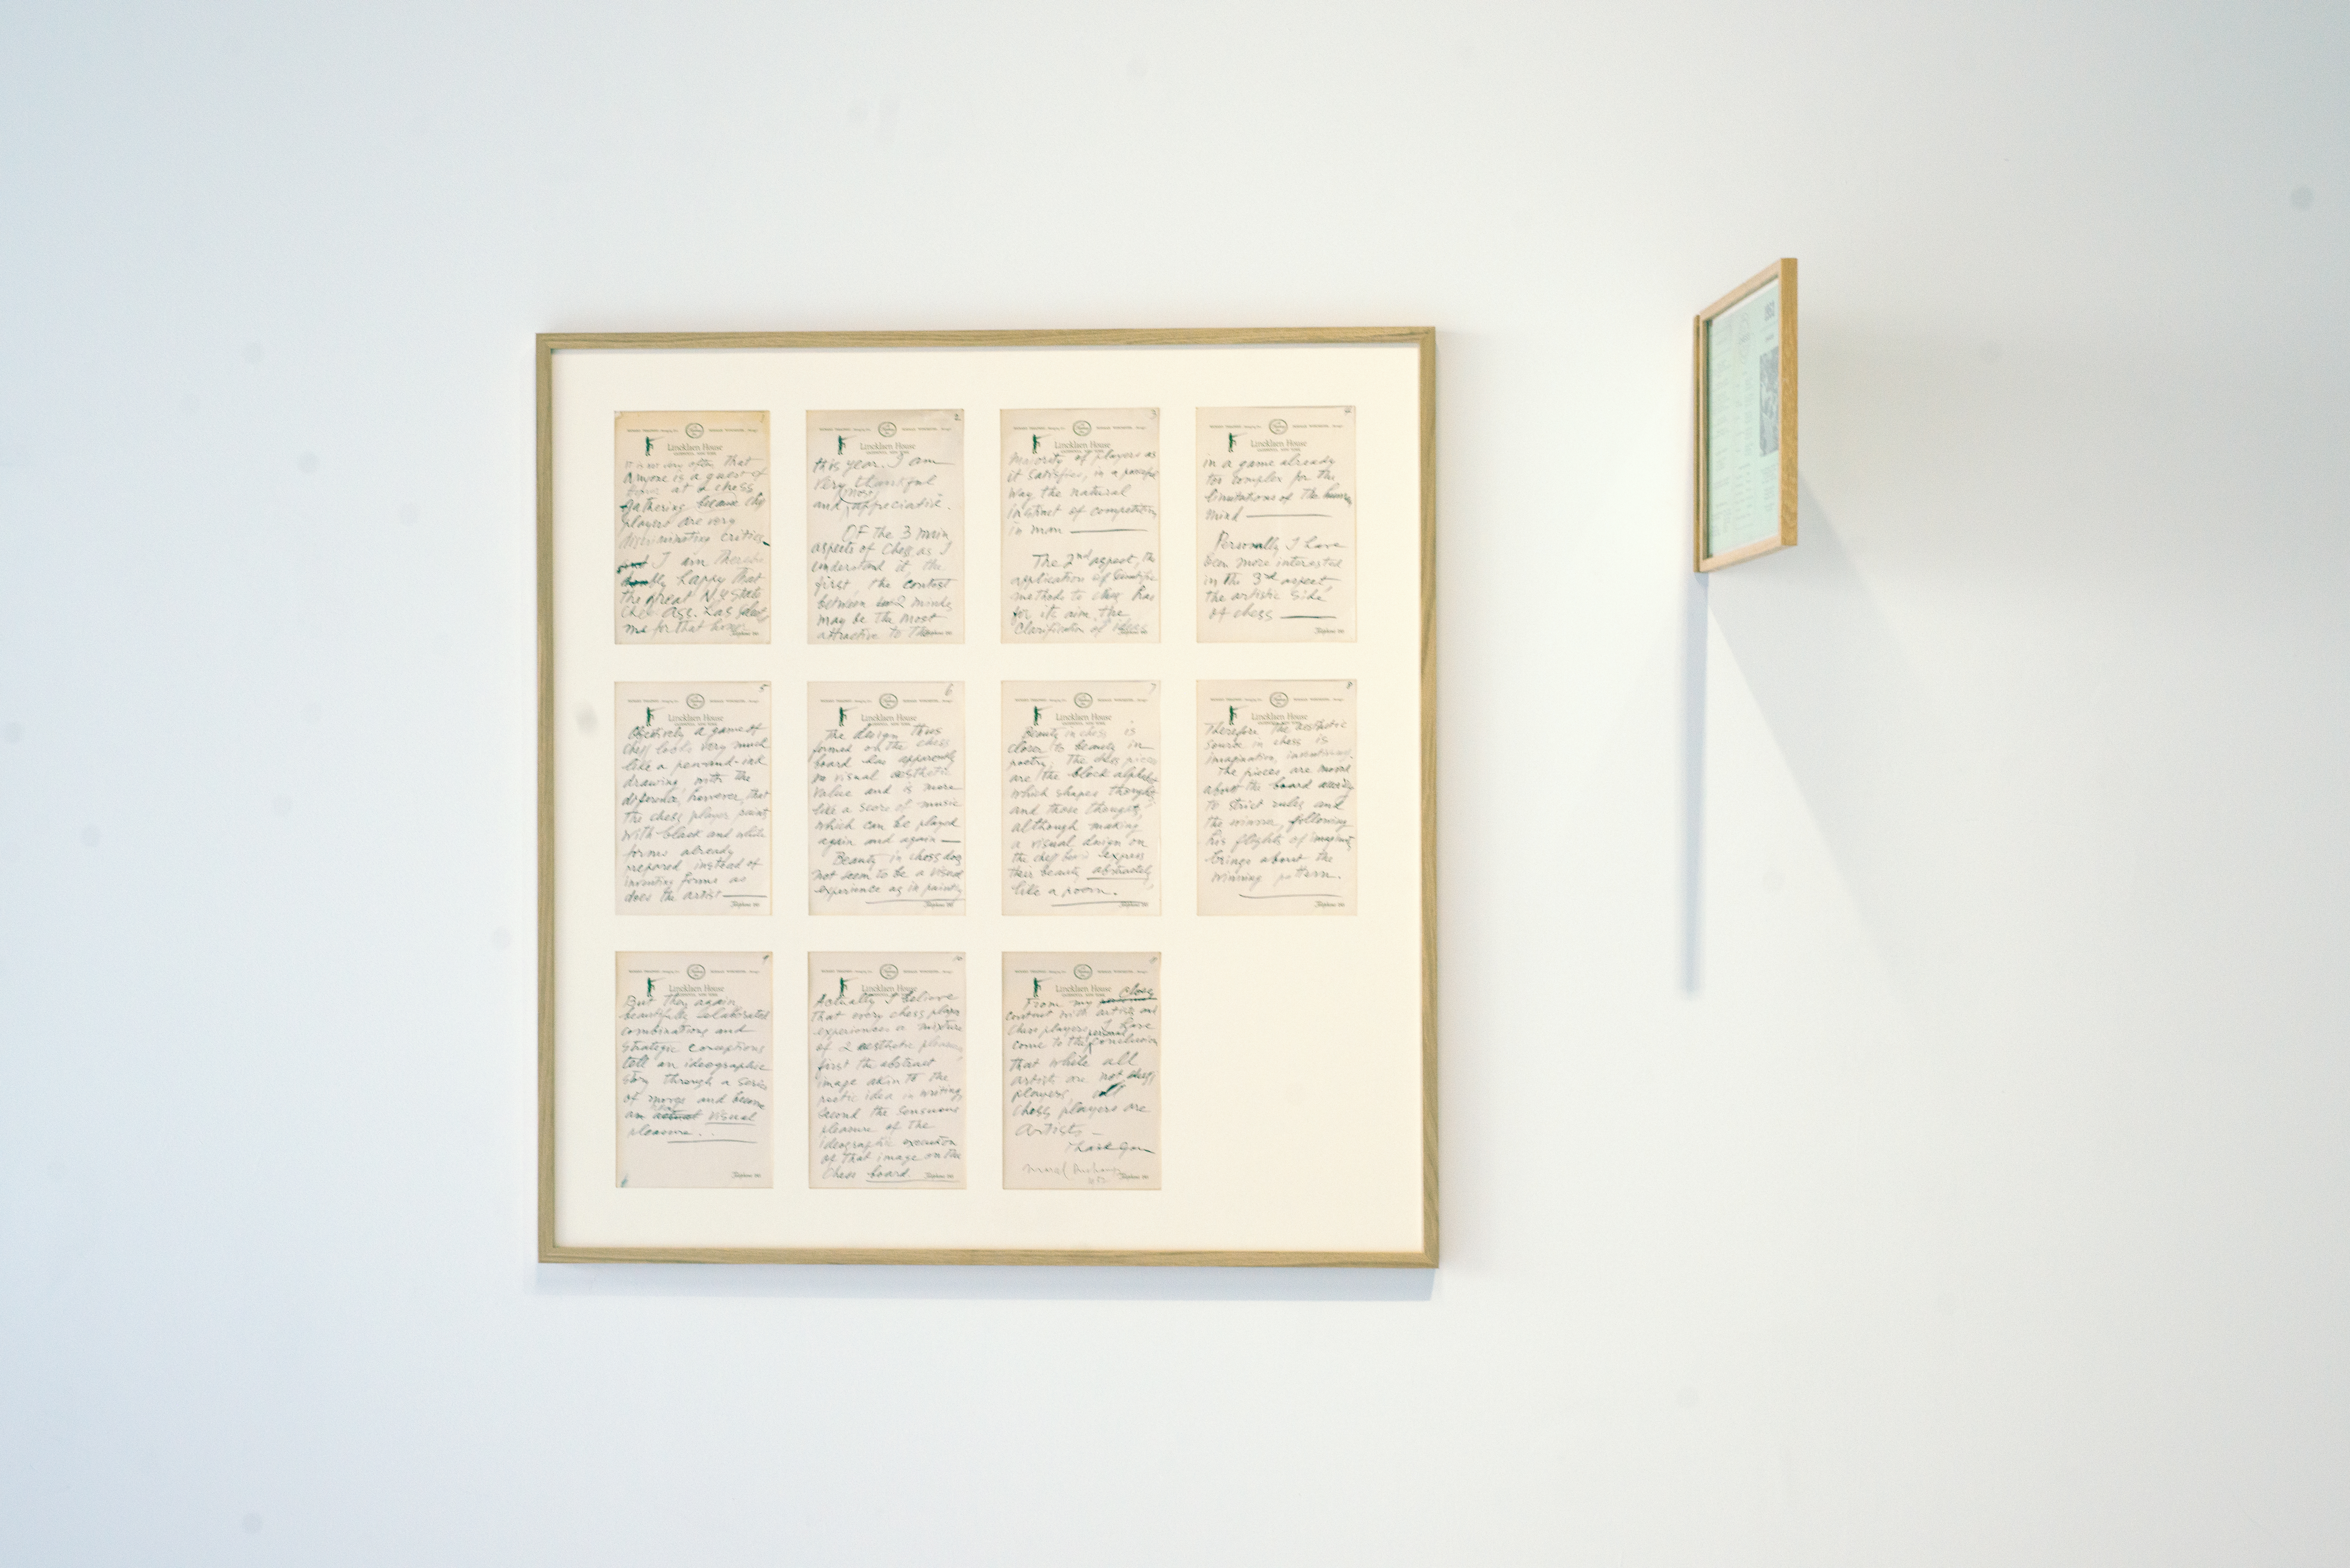 1
Lincklaen House
It is not very often that
anyone is a guest of
honor at a chess
gathering because chess
players are very
discriminating critics
and I am therefore
doubly happy that
the great N.Y State
Chess Ass. has selected
me for that honor
2
Lincklaen House
this year. I am
very thankful
most
and appreciative.
OF the 3 main
aspects of Chess as I
understand it the
first, the contest
between 2 minds
may be the most
attractive to the
3
Lincklaen House
Majority of players as
it satisfies, in a peaceful
way the natural
instinct of competition
in man
The 2nd aspect, the
application of scientific
methods to chess has
for its aim the
Clarification of ideas
4
Lincklaen House
in a game already
too complex for the
limitations of the human
mind
Personally I have
been more interested
in the 3rd aspect,
the artistic side
of chess
5
Lincklaen House
Objectively a game of
chess looks very much
like a pen-and-ink
drawing with the
difference, however, that
the chess player paints
with black and white
forms already
prepared instead of
inventing forms as
does the artist
6
Lincklaen House
The design thus
formed on the chess
board has apparently
no visual aesthetic
value and is more
like a score of music
which can be played
again and again
Beauty in chess does
not seem to be a visual
experience as in painting
7
Lincklaen House
Beauty in chess is
closer to beauty in
poetry; the chess pieces
are the block alphabet
which shapes thoughts
and those thoughts,
although making
a visual design on
the chess board express
their beauty abstractly
like a poem.
8
Lincklaen House
Therefore the aesthetic
source in chess is
imagination, inventiveness.
The pieces are moved
about the board according
to strict rules and
the winner, following
his flights of imagination
brings about the
winning pattern.
9
Lincklaen House
But then again,
beautifully elaborated
combinations and
strategic conceptions
tell an ideographic
story through a series
of moves and become
an actual visual
pleasure...
10
Lincklaen House
Actually I believe
that every chess player
experiences a mixture
of 2 aesthetic pleasures,
first the abstract
image akin to the
poetic idea in writing,
second the sensuous
pleasure of the
ideographic execution
of that image on the
chess board.
11
Lincklaen House
close
From my
contact with artists and
chess players I have
personal
come to the conclusion
that while all
artists are not chess
players, all
chess players are
artists
Thank you
Marcel Duchamp